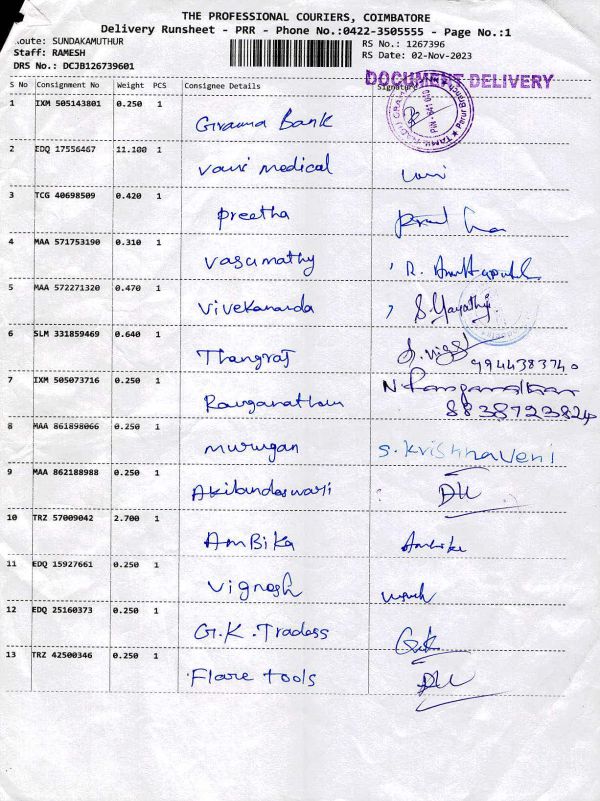 THE PROFESSIONAL COURIERS, COIMBATORE
Delivery Runsheet - PRR - Phone No.:0422-3505555 - Page No.:1
Route: SUNDAKAMUTHUR
RS No.: 1267396
Staff: RAMESH
RS Date: 02-Nov-2023
DRS No.: DCJB126739601
DOCUMENT DELIVERY
S No Consignment No Weight PCS Consignee Details Signature
1 IXM 505143801 0.250 1 Grama Bank
2 EDQ 17556467 11.100 1 Vani medical Vani
3 TCG 40698509 0.420 1 Preetha
4 MAA 571753190 0.310 1 Vasumathy R.
5 MAA 572271320 0.470 1 Vivekananda S. Gayathji
6 SLM 331859469 0.640 1 Thangraj 9944383740
7 IXM 505073716 0.250 1 Ranganatham N
8838723824
8 MAA 861898066 0.250 1 murugan S. Krishnaveni
9 MAA 862188988 0.250 1 Akilandeswari
10 TRZ 57009042 2.700 1 AmBika Ambika
11 EDQ 15927661 0.250 1 Vignesh
12 EDQ 25160373 0.250 1 G.K. Tradess G.K
13 TRZ 42500346 0.250 1 Flare tools